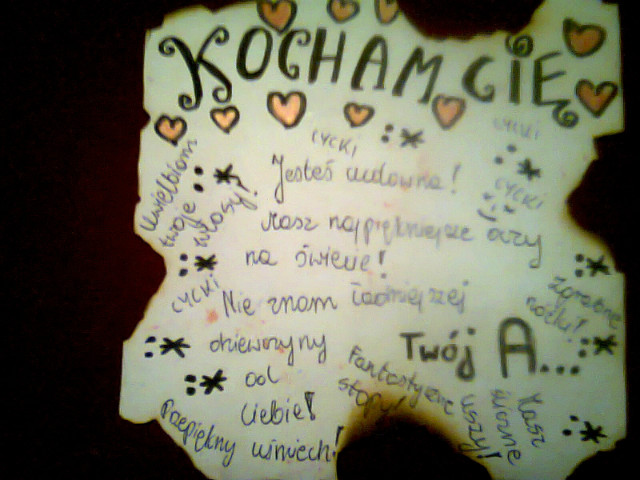 KOCHAM CIĘ
cycki :* cycki
Jesteś cudowna! :*
Uwielbiam twoje włosy! :*
cycki
Masz najpiękniejsze oczy
na świecie! :*
:*
cycki
Nie znam ładniejszej
Zgrabne nóżki! :*
:* dziewczyny
Twój A...
:* od
Ciebie!
Fantastyczne stopy!
Masz śliczne uszy! :*
Przepiękny uśmiech!